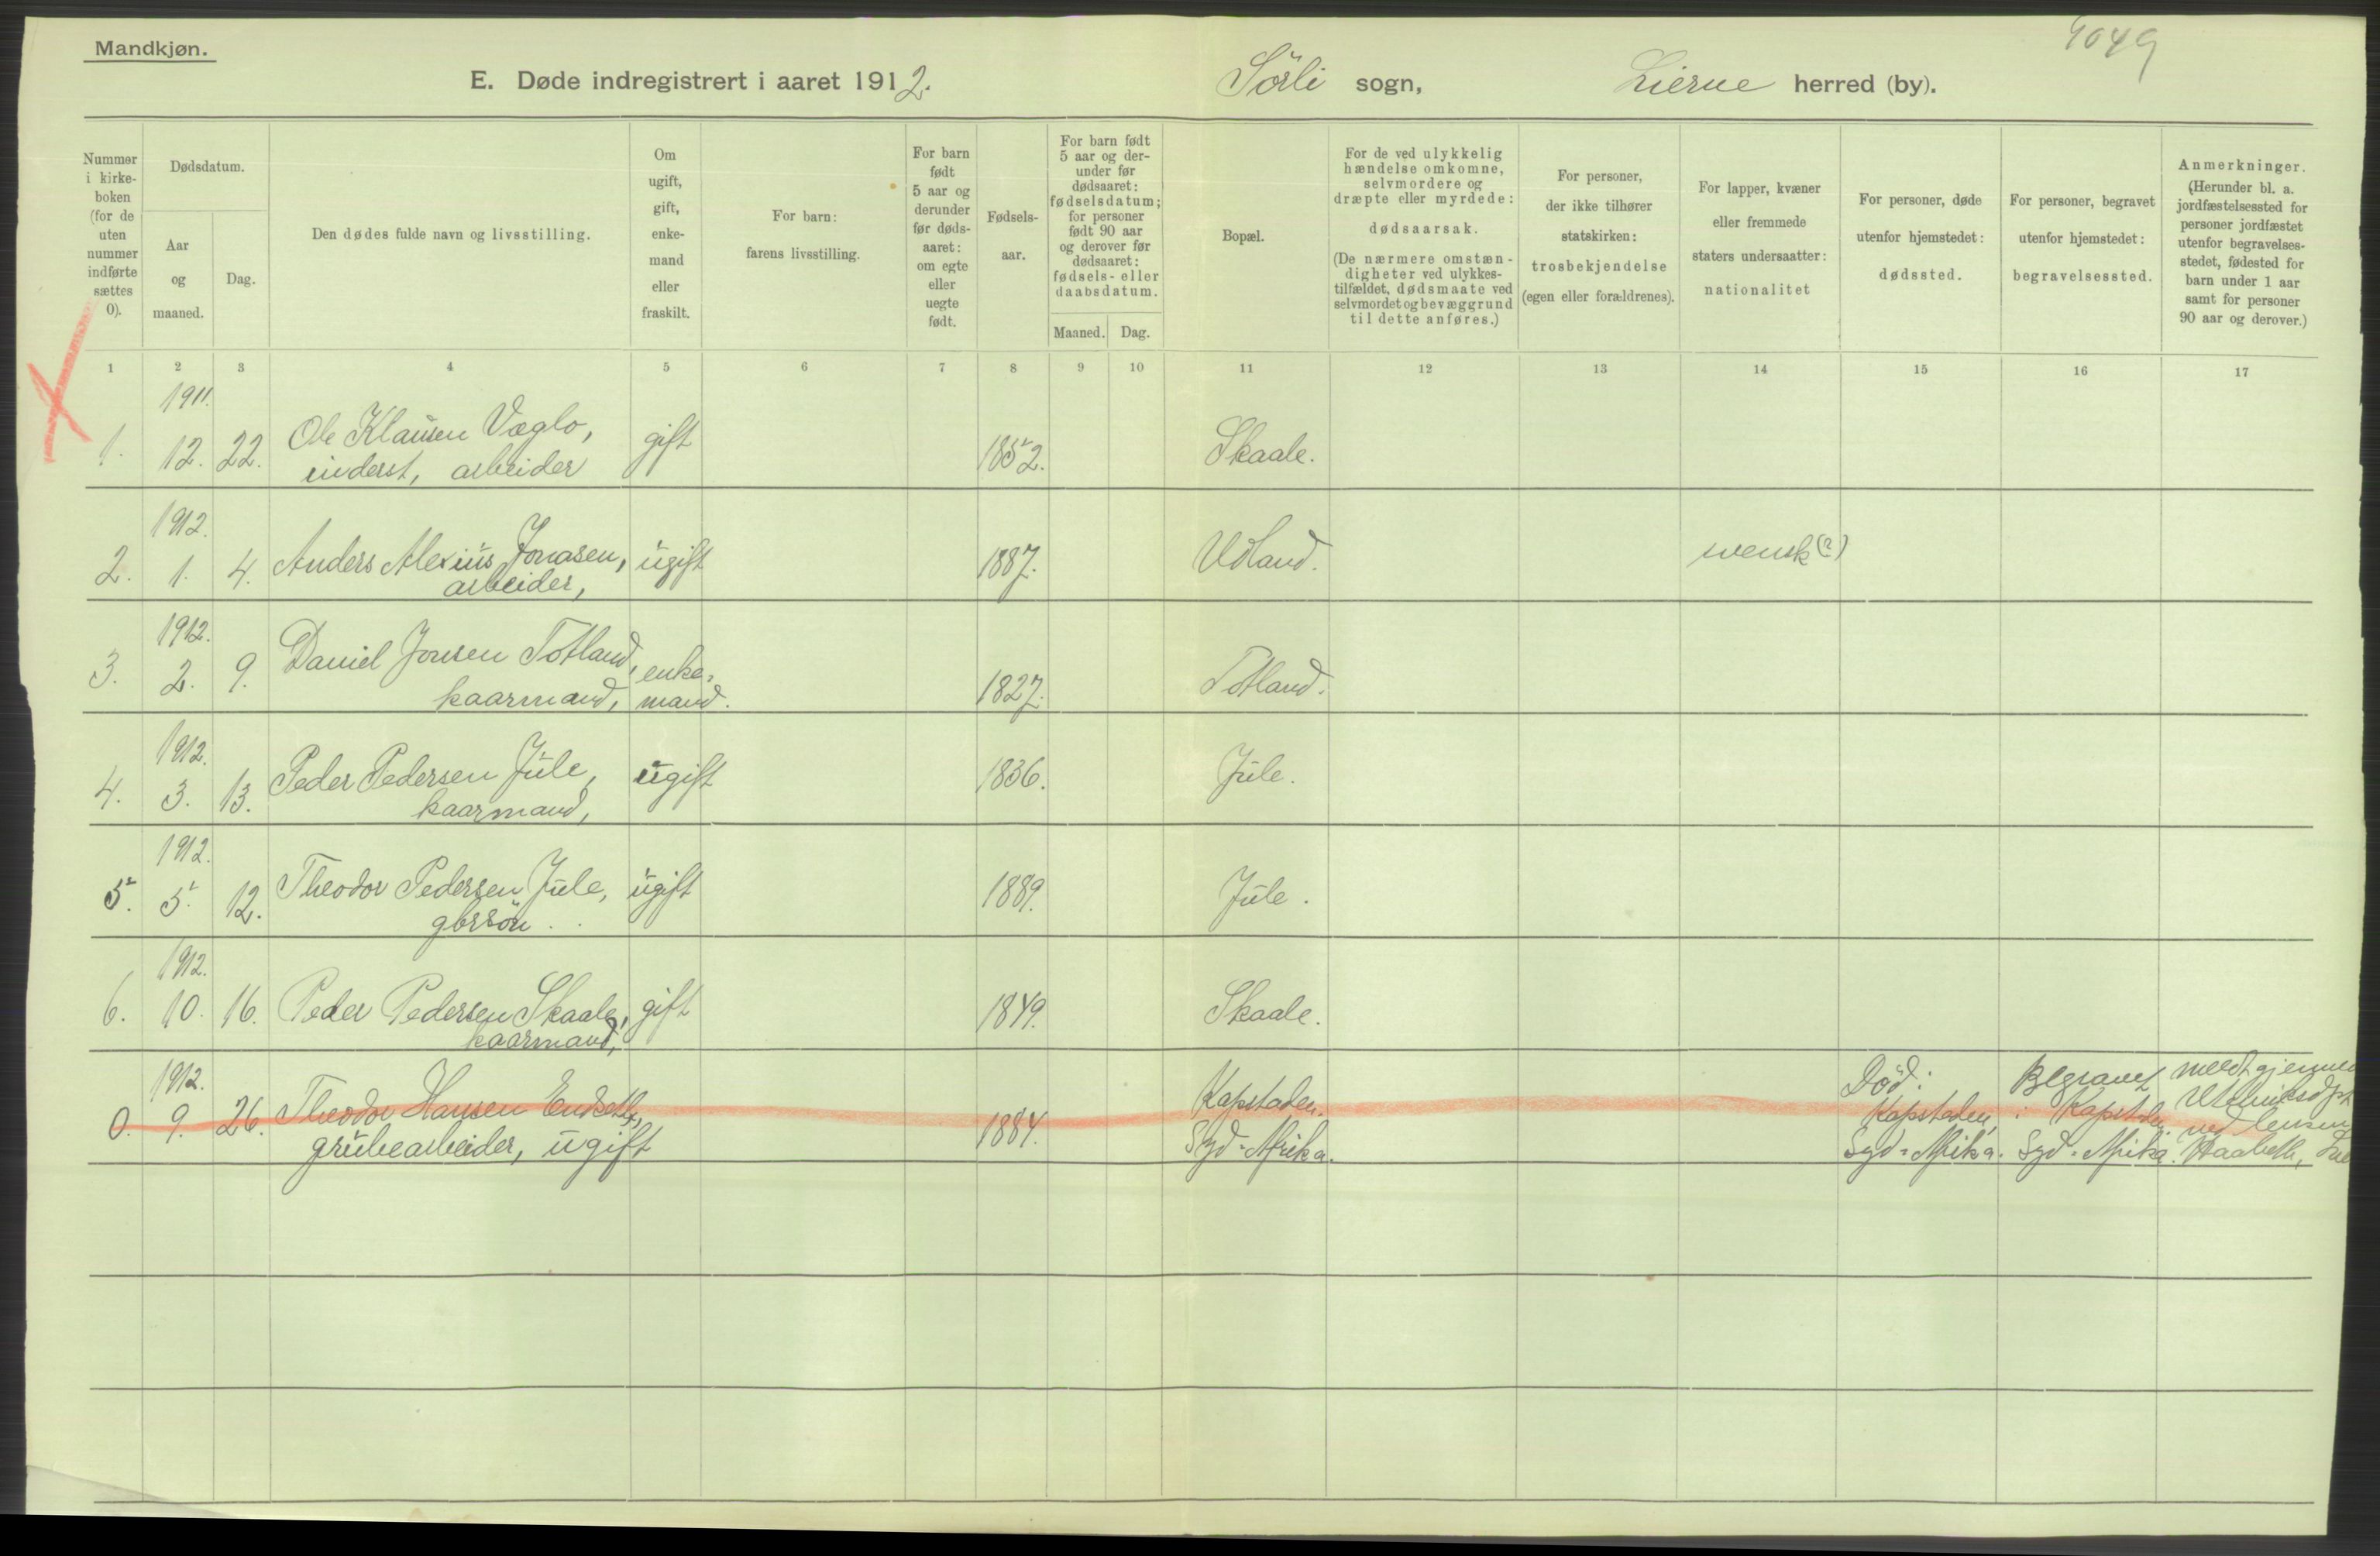 Mandkjøn.
9049
E. Døde indregistrert i aaret 1912. Sörli sogn, Lierne herred (by).
Nummer i kirkeboken (for de uten nummer indførte sættes 0).
Dødsdatum.
Aar og maaned.
Dag.
Den dødes fulde navn og livsstilling.
Om ugift, gift, enkemand eller fraskilt.
For barn: farens livsstilling.
For barn født 5 aar og derunder før dødsaaret: om egte eller uegte født.
Fødselsaar.
For barn født 5 aar og derunder før dødsaaret: fødselsdatum; for personer født 90 aar og derover før dødsaaret: fødsels- eller daabsdatum.
Maaned. Dag.
Bopæl.
For de ved ulykkelig hændelse omkomne, selvmordere og dræpte eller myrdede: dødsaarsak.
(De nærmere omstændigheter ved ulykkestilfældet, dødsmaate ved selvmordet og bevæggrund til dette anføres.)
For personer, der ikke tilhører statskirken: trosbekjendelse (egen eller forældrenes).
For lapper, kvæner eller fremmede staters undersaatter: nationalitet
For personer, døde utenfor hjemstedet: dødssted.
For personer, begravet utenfor hjemstedet: begravelsessted.
Anmerkninger.
(Herunder bl. a. jordfæstelsessted for personer jordfæstet utenfor begravelsesstedet, fødested for barn under 1 aar samt for personer 90 aar og derover.)
1 2 3 4 5 6 7 8 9 10 11 12 13 14 15 16 17
1911.
1. 12. 22. Ole Klausen Væglo, gift 1852. Skaale.
inderst, arbeider
1912.
2. 1. 4. Anders Alexius Jonasen, ugift 1887. Udland. svensk (?)
arbeider,
1912.
3. 2. 9. Daniel Jonsen Totland, enke- 1827. Totland.
kaarmand, mand.
1912.
4. 3. 13. Peder Pedersen Jule, ugift 1836. Jule.
kaarmand,
1912.
5. 5. 12. Theodor Pedersen Jule, ugift 1889. Jule.
gbrsön.
1912.
6. 10. 16. Peder Pedersen Skaale, gift 1849. Skaale.
kaarmand,
1912.
0. 9. 26. Theodor Hansen 1884. Kapstaden. Död: Kapstaden, Begravet i Kapstaden meldt gjennem
grubearbeider, ugift Syd-Afrika. Syd-Afrika. Syd-Afrika. ved lensm